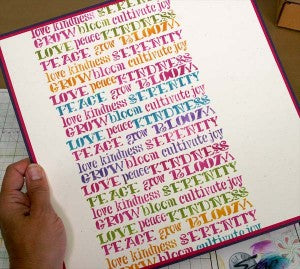 love kindness SERENITY
GROW bloom cultivate joy
LOVE peace KINDNESS
PEACE grow BLOOM
love kindness SERENITY
GROW bloom cultivate joy
LOVE peace KINDNESS
PEACE grow BLOOM
love kindness SERENITY
GROW bloom cultivate joy
LOVE peace KINDNESS
PEACE grow BLOOM
love kindness SERENITY
GROW bloom cultivate joy
LOVE peace KINDNESS
PEACE grow BLOOM
love kindness SERENITY
GROW bloom cultivate joy
LOVE peace KINDNESS
PEACE grow BLOOM
love kindness SERENITY
GROW bloom cultivate joy